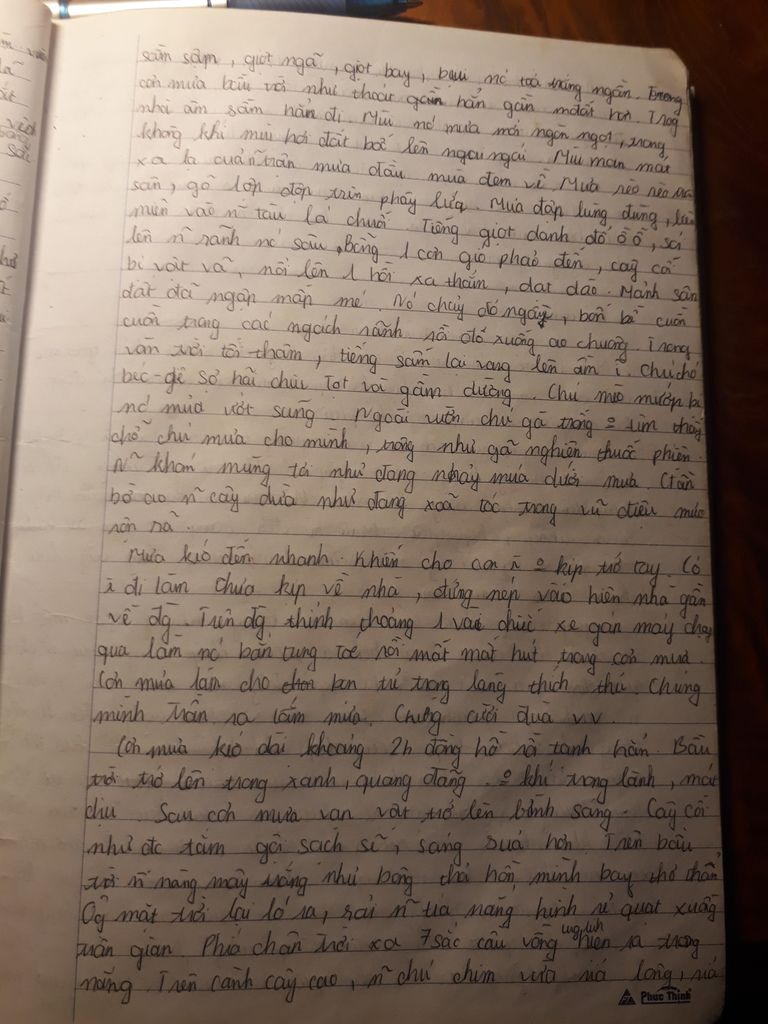 sầm sập, giọt ngã, giọt bay, bụi nc toả trắng ngần. Trong
cơn mưa bầu trời như thoát gần hẳn gần mđất hơn. Trong
nhà âm sầm hẳn đi. Mùi nc mưa mới ngòn ngọt, trong
không khí mùi hơi đất bốc lên ngai ngái. Mùi man mát
xa lạ của trận mưa đầu mùa đem về. Mưa rèo rèo trên
sân, gõ lộp độp trên phây lứa. Mưa đập lùng đùng, liên
miên vào n~ tàu lá chuối. Tiếng giọt danh đổ ồ ồ, sói
lên n~ rãnh nc sâu. Bỗng 1 cơn gió phao đến, cây cối
bị vật vã, nổi lên 1 hồi xa thẳm, dạt dào. Mảnh sân
đất đã ngập mấp mé. Nó chảy đỏ ngầy, bốn bề cuồn
cuộn trong các ngách rãnh rồi đổ xuống ao chuôm. Trong
vàn trời tối thẳm, tiếng sấm lại vang lên ầm ì. Chú chó
béc-gê sợ hãi chui tọt và gầm dường. Chú mèo mướp bị
nc mưa ướt sũng. Ngoài vườn chú gà trống o tìm thấy
chỗ chú mưa cho mình, trông như gã nghiện thuốc phiện.
N~ khóm mùng tơi như đang nhảy múa dưới mưa. Cạnh
bờ ao n~ cây dừa như đang xoã tóc trong vũ điệu mưa
rộn rã.
Mưa kéo đến nhanh. Khiến cho con i o kịp trở tay. Có
i đi làm chưa kịp về nhà, đứng nép vào hiên nhà gần
vệ đg. Trên đg thỉnh thoảng 1 vài chiếc xe gắn máy chạy
qua làm nc bắn tung toé rồi mất mát hút trong cơn mưa.
Cơn mưa làm cho bọn trẻ trong làng thích thú. Chúng
mình trần ra tắm mưa. Chúng cười đùa v.v
Cơn mưa kéo dài khoảng 2h đồng hồ rồi tạnh hẳn. Bầu
trời trở lên trong xanh, quang đãng. o khí trong lành, mát
dịu. Sau cơn mưa vạn vật trở lên bừng sáng. Cây cối
như đc tắm gội sạch sẽ, sáng sủa hơn. Trên bầu
trời n~ nàng mây trắng như bông thả hồn mình bay thơ thẩn
Ông mặt trời lại ló ra, rải n~ tia nắng hình rẻ quạt xuống
trần gian. Phía chân trời xa 7 sắc cầu vồng ung linh hiện ra trong
nắng. Trên cành cây cao, n~ chú chim vừa rỉa lông, rỉa
Phúc Thịnh